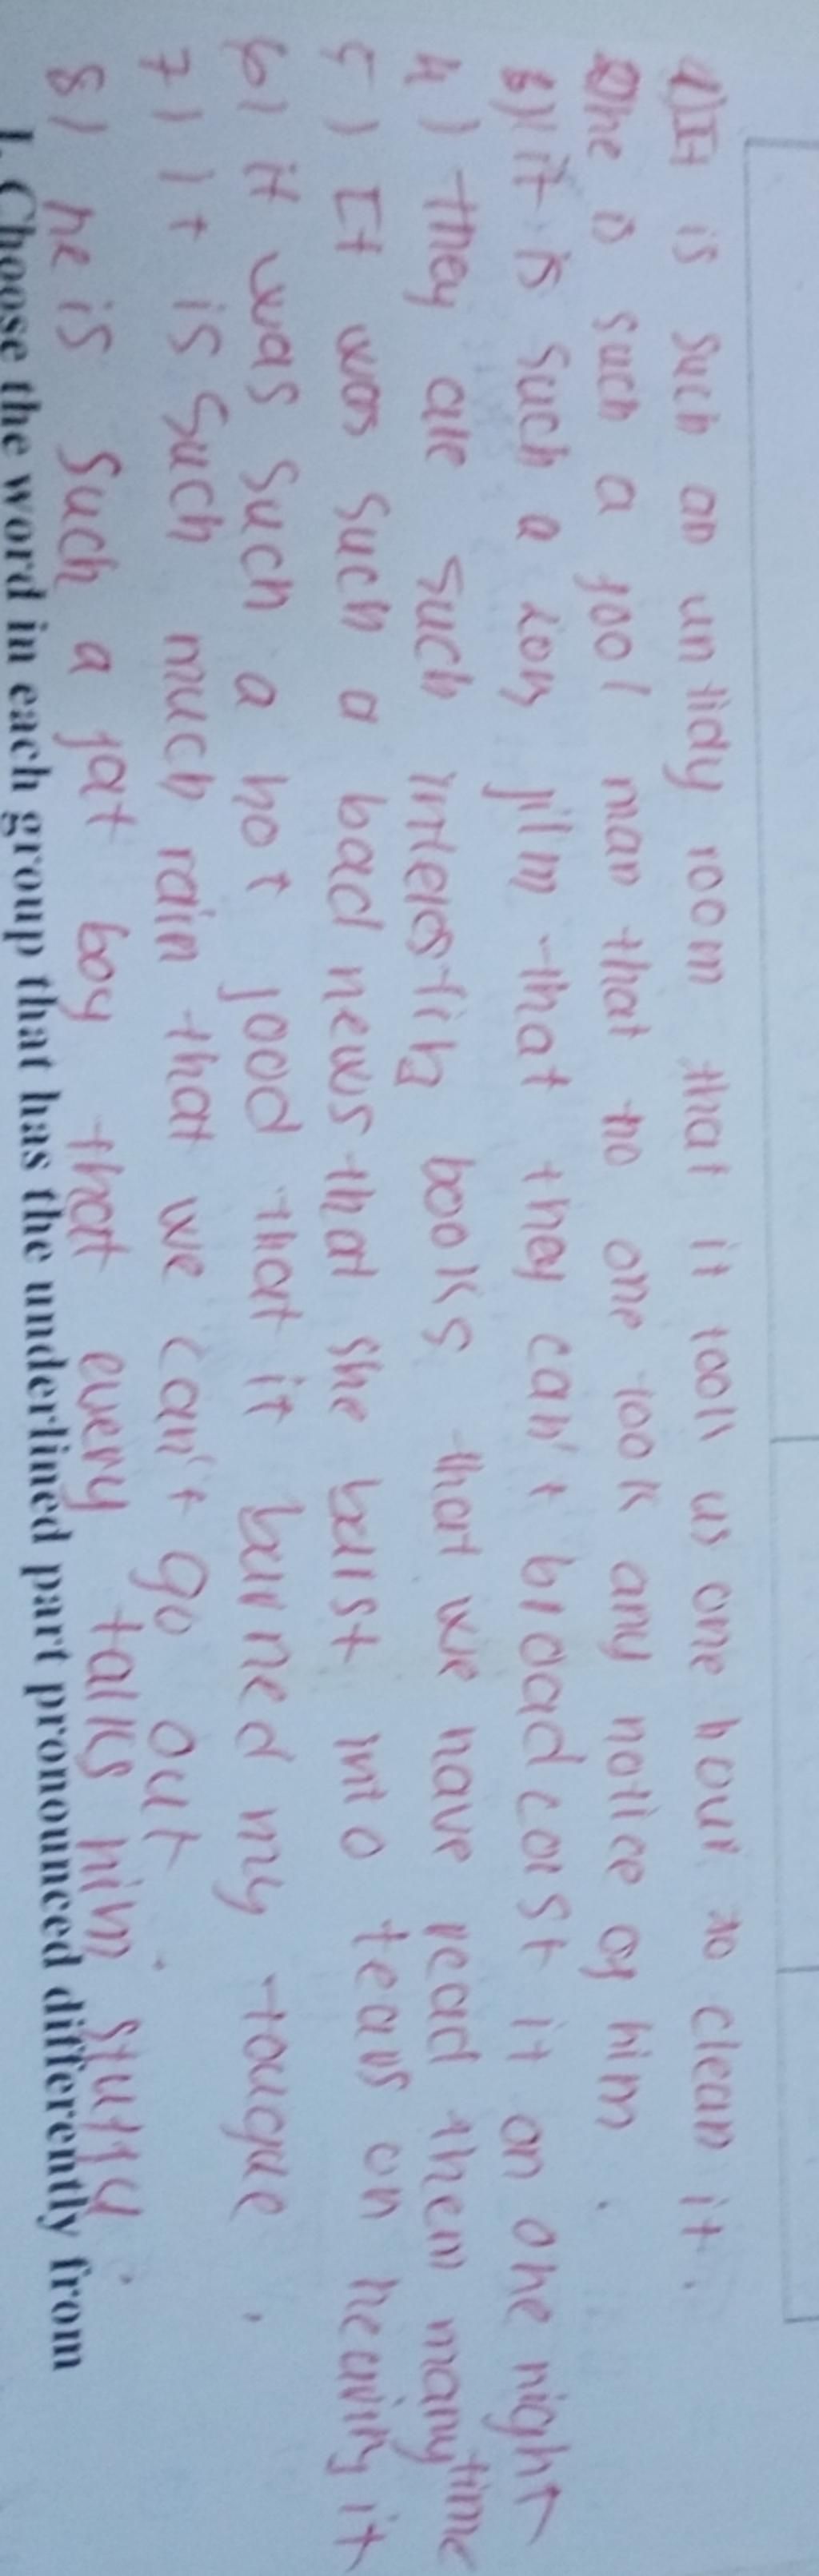 1) It is such an untidy room that it took us one hour to clean it.
2) he is such a fool man that no one took any notice of him.
3) it is such a long film that they can't broadcast it on one night
4) they are such interesting books that we have read them many time
5) It was such a bad news that she burst into tears on hearing it
6) it was such a hot food that it burned my tougue.
7) It is such much rain that we can't go out.
8) he is such a fat boy that every talks him
I. Choose the word in each group that has the underlined part pronounced differently from